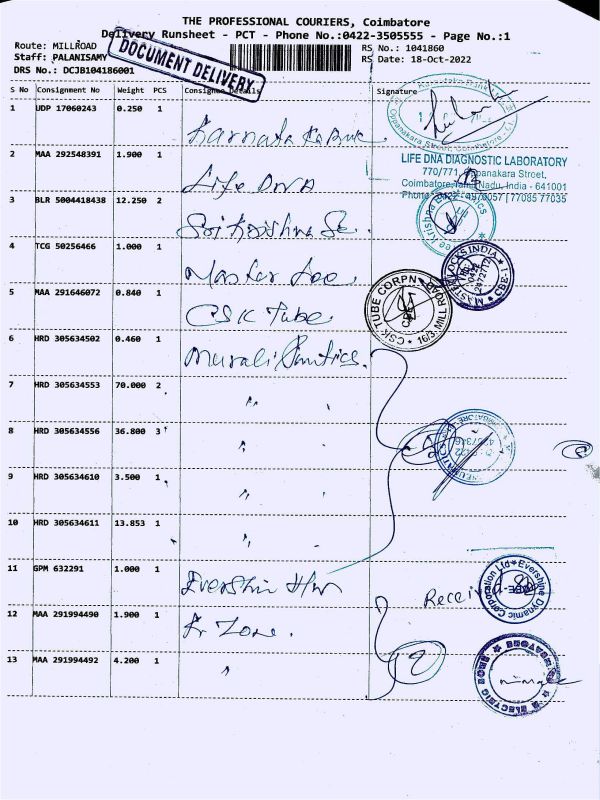 THE PROFESSIONAL COURIERS, Coimbatore
Delivery Runsheet - PCT - Phone No.:0422-3505555 - Page No.:1
Route: MILLROAD
RS No.: 1041860
Staff: PALANISAMY
RS Date: 18-Oct-2022
DRS No.: DCJB104186001
DOCUMENT DELIVERY
S No Consignment No Weight PCS Consignee Details Signature
1 UDP 17060243 0.250 1
2 MAA 292548391 1.900 1 Life DNA
LIFE DNA DIAGNOSTIC LABORATORY
770/771, Oppanakara Street,
Coimbatore, Tamil Nadu, India - 641001
3 BLR 5004418438 12.250 2
4 TCG 50256466 1.000 1 Master
5 MAA 291646072 0.840 1 CSK Tube
CSK TUBE CORPN
6 HRD 305634502 0.460 1 Murali
7 HRD 305634553 70.000 2 "
8 HRD 305634556 36.800 3 "
9 HRD 305634610 3.500 1 "
10 HRD 305634611 13.853 1 "
11 GPM 632291 1.000 1
Evershine Dynamic Corporation Ltd
12 MAA 291994490 1.900 1 Zone
13 MAA 291994492 4.200 1 "
ELECTRIC ZONE